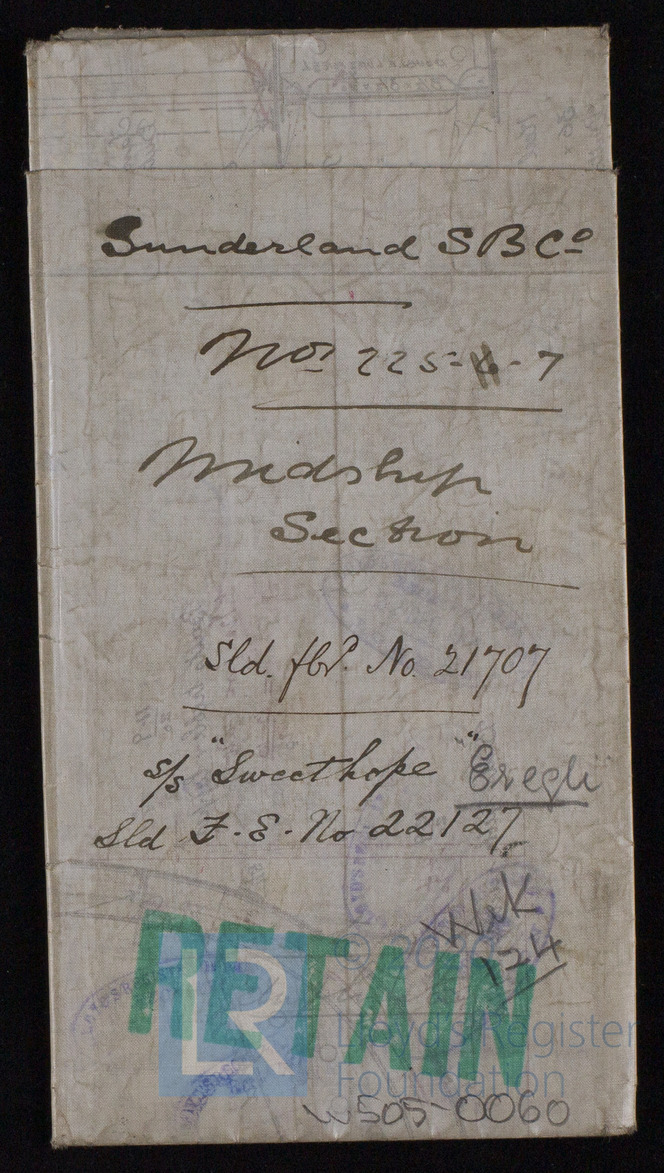 Sunderland S B Co
Nos 225-6-7
Midship
Section
Sld. fbd. No. 21707
s/s "Sweethope" "Eregli"
Sld F.E. No 22127
Wk
124
RETAIN
© 20
LR
Lloyd's Register
Foundation
W505-0060